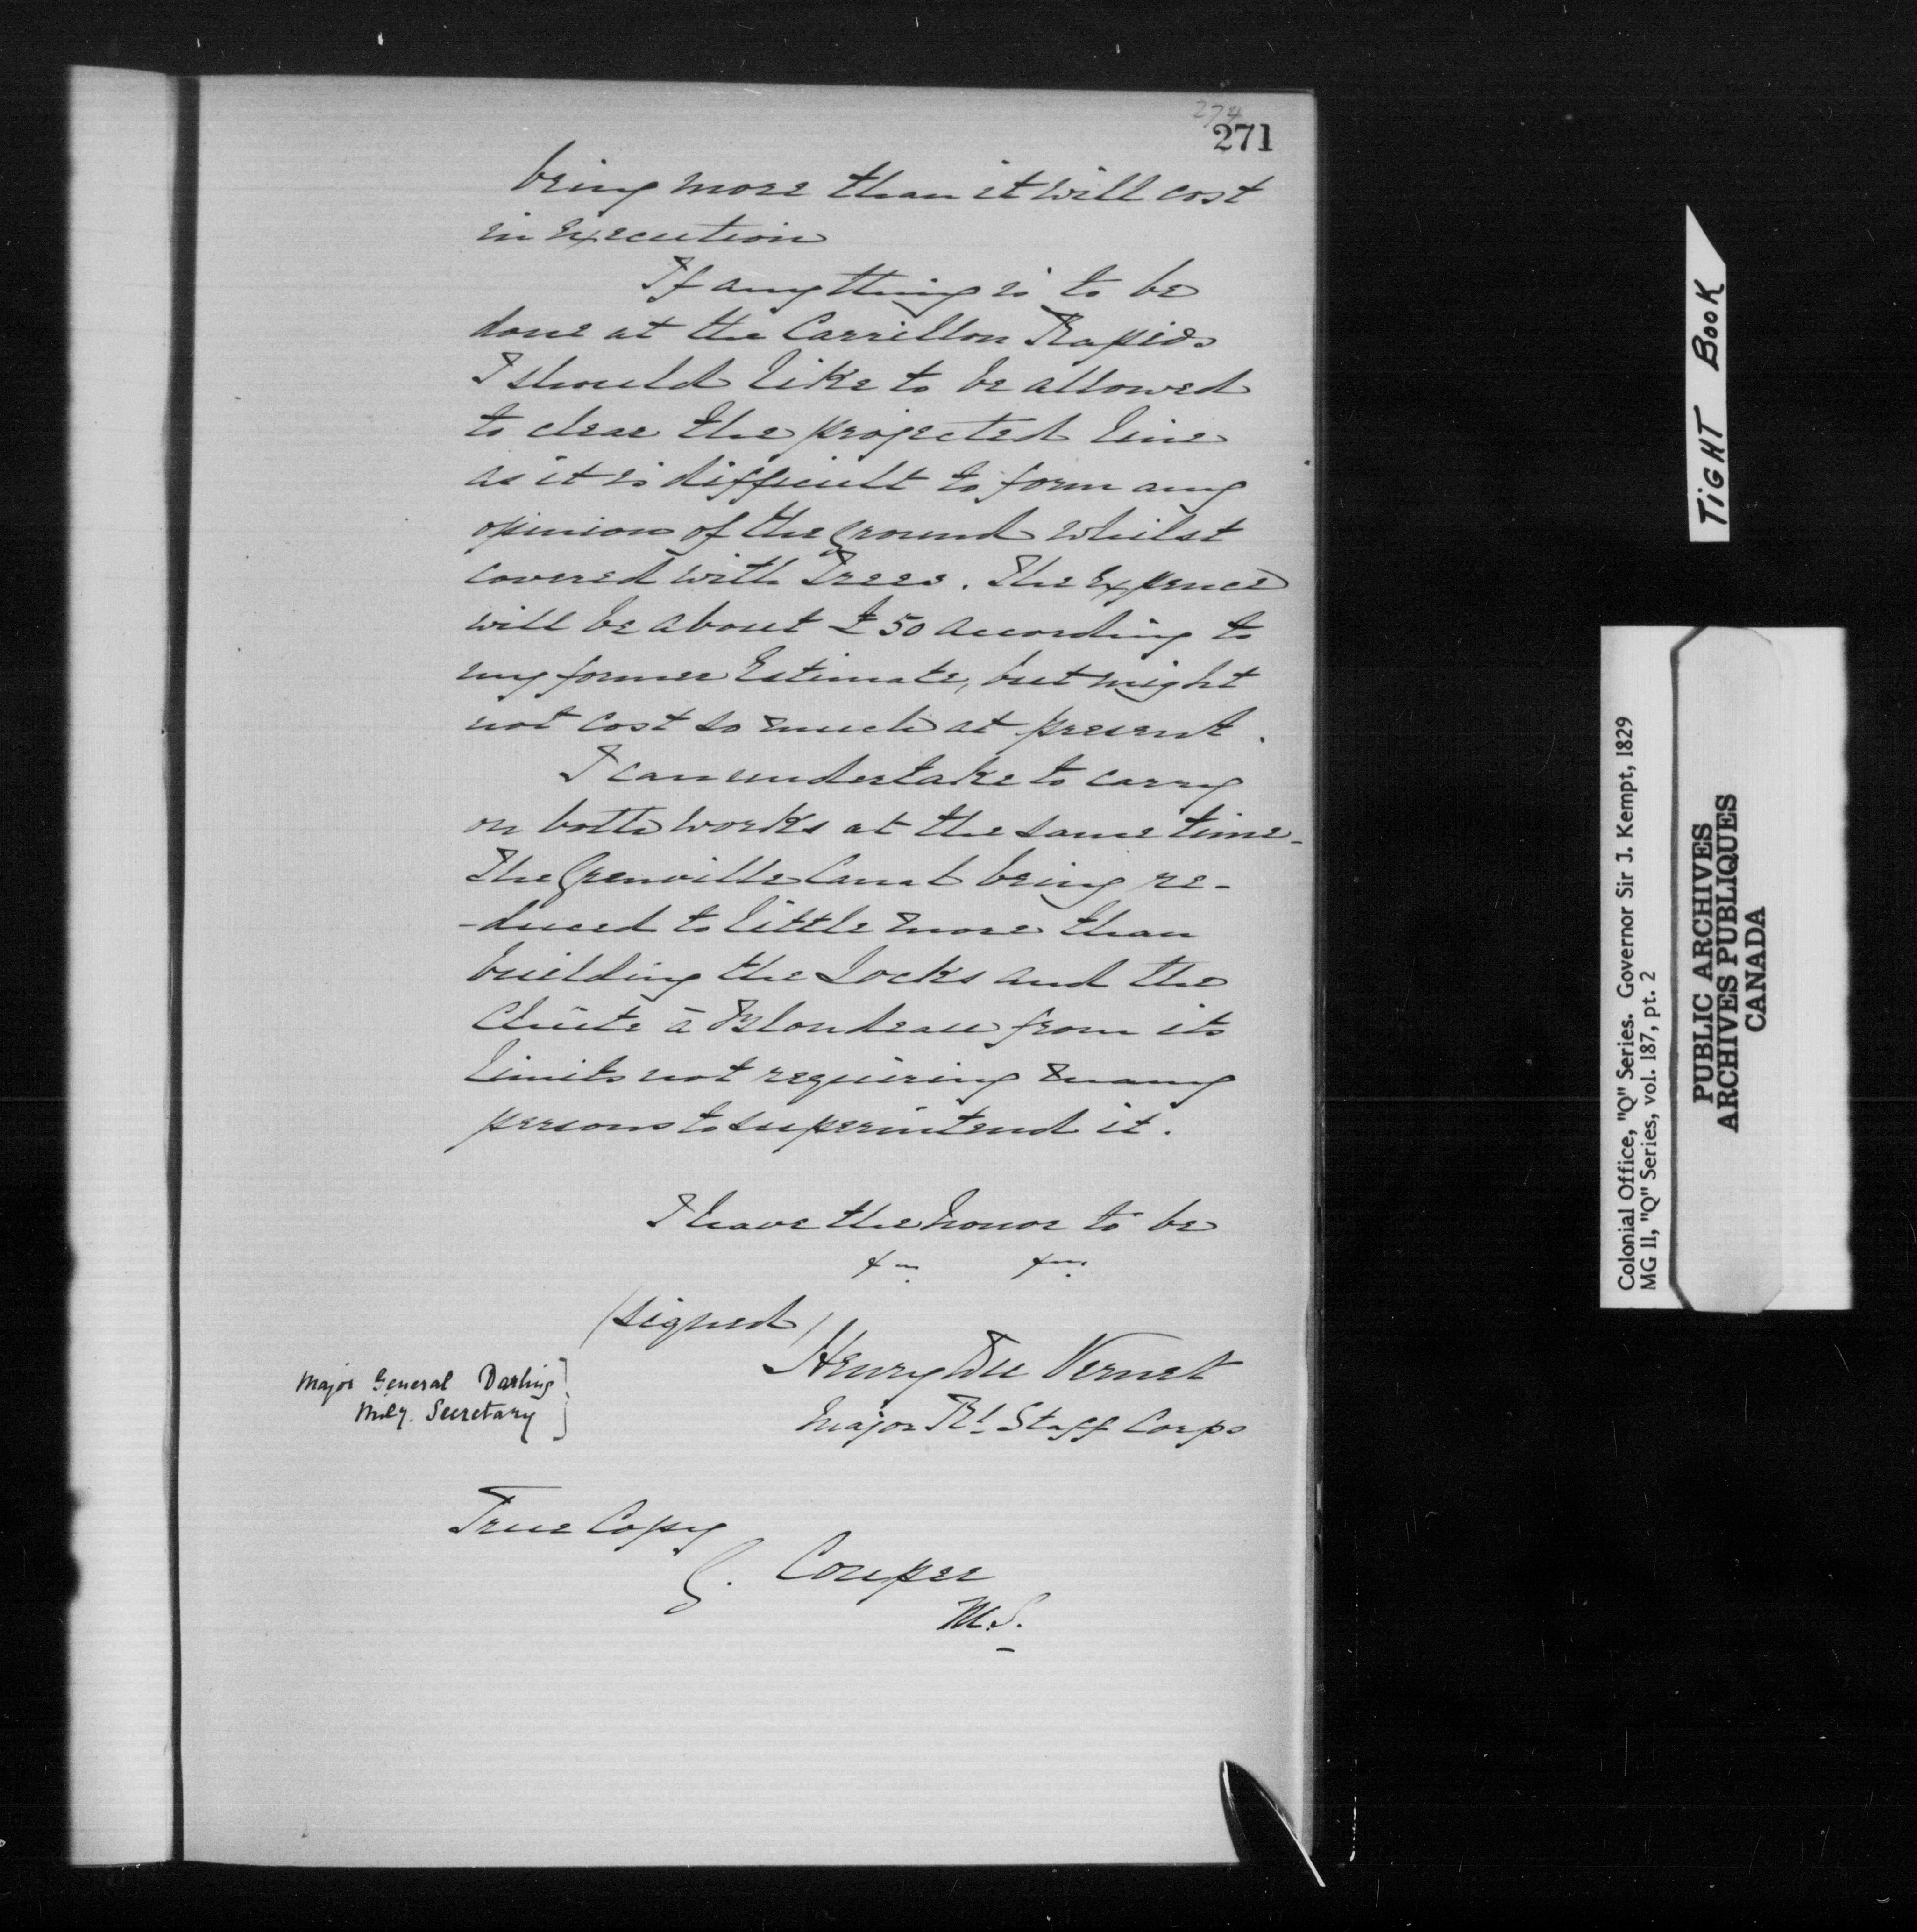 274
271
being more than it will cost
in Execution
If anything is to be
done at the Carrillon Rapids
I should like to be allowed
to clear the projected line
as it is difficult to form any
opinion of the ground whilst
covered with Trees. The Expence
will be about £50 according to
my former Estimate, but might
not cost so much at present.
I can undertake to carry
on both works at the same time-
The Grenville Canal being re-
-duced to little more than
building the Locks and the
Chûte à Blondeau from its
limits not requiring many
persons to superintend it.
I have the honor to be
(signed)
Henry Du Vernet
Major Rl. Staff Corps
Major General Darling
Mily. Secretary
True Copy
G. Couper
M.S.
TiGHT BooK
Colonial Office, "Q" Series. Governor Sir J. Kempt, 1829
MG 11, "Q" Series, vol. 187, pt. 2
PUBLIC ARCHIVES
ARCHIVES PUBLIQUES
CANADA